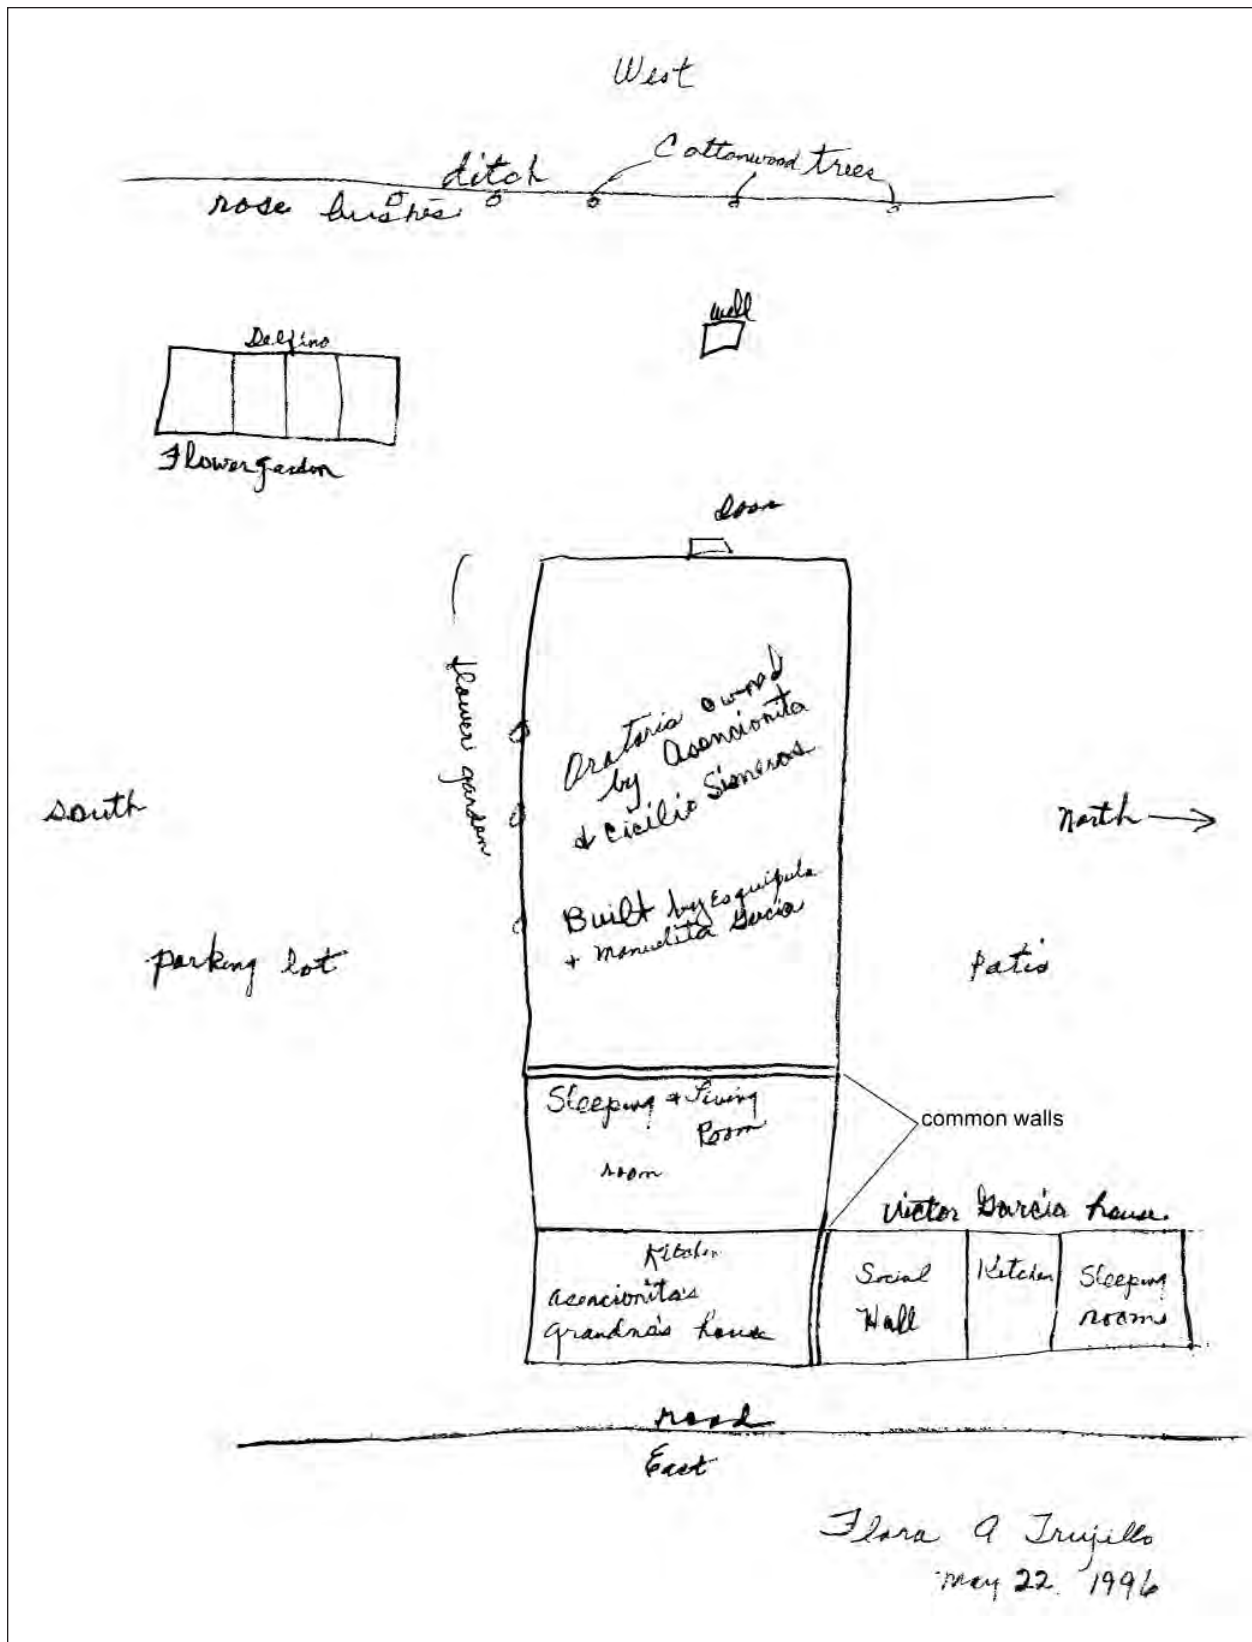 West
Cottonwood trees
ditch
rose bushes
well
Delfino
Flower garden
door
flower garden
Oratorio owned
by Asencionita
& Cicilio Sisneros
Built by Esquipula
+ Manuelita Garcia
south
North
parking lot
Patio
Sleeping + Living
Room
room
common walls
Victor Garcia house
Kitchen
Asencionita's
grandma's house
Social
Hall
Kitchen
Sleeping
rooms
road
East
Flora A Trujillo
May 22. 1996